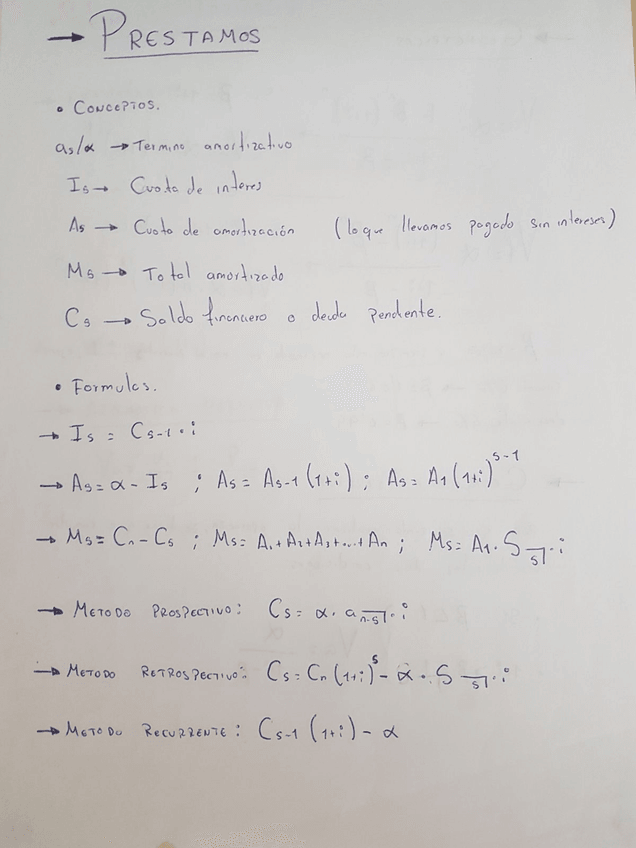 → PRESTAMOS
• CONCEPTOS.
as/α → Termino amortizativo
Is → Cuota de interes
As → Cuota de amortización (lo que llevamos pagado sin intereses)
Ms → Total amortizado
Cs → Saldo financiero o deuda pendiente.
• Formulas.
→ Is = Cs-1 · i
→ As = α - Is ; As = As-1 (1+i) ; As = A1 (1+i)^s-1
→ Ms = Cn - Cs ; Ms = A1 + A2 + A3 + ... + An ; Ms = A1 · S s┐· i
→ METODO PROSPECTIVO: Cs = α · a n-s┐· i
→ METODO RETROSPECTIVO: Cs = Cn (1+i)^s - α · S s┐· i
→ METODO RECURRENTE: Cs-1 (1+i) - α